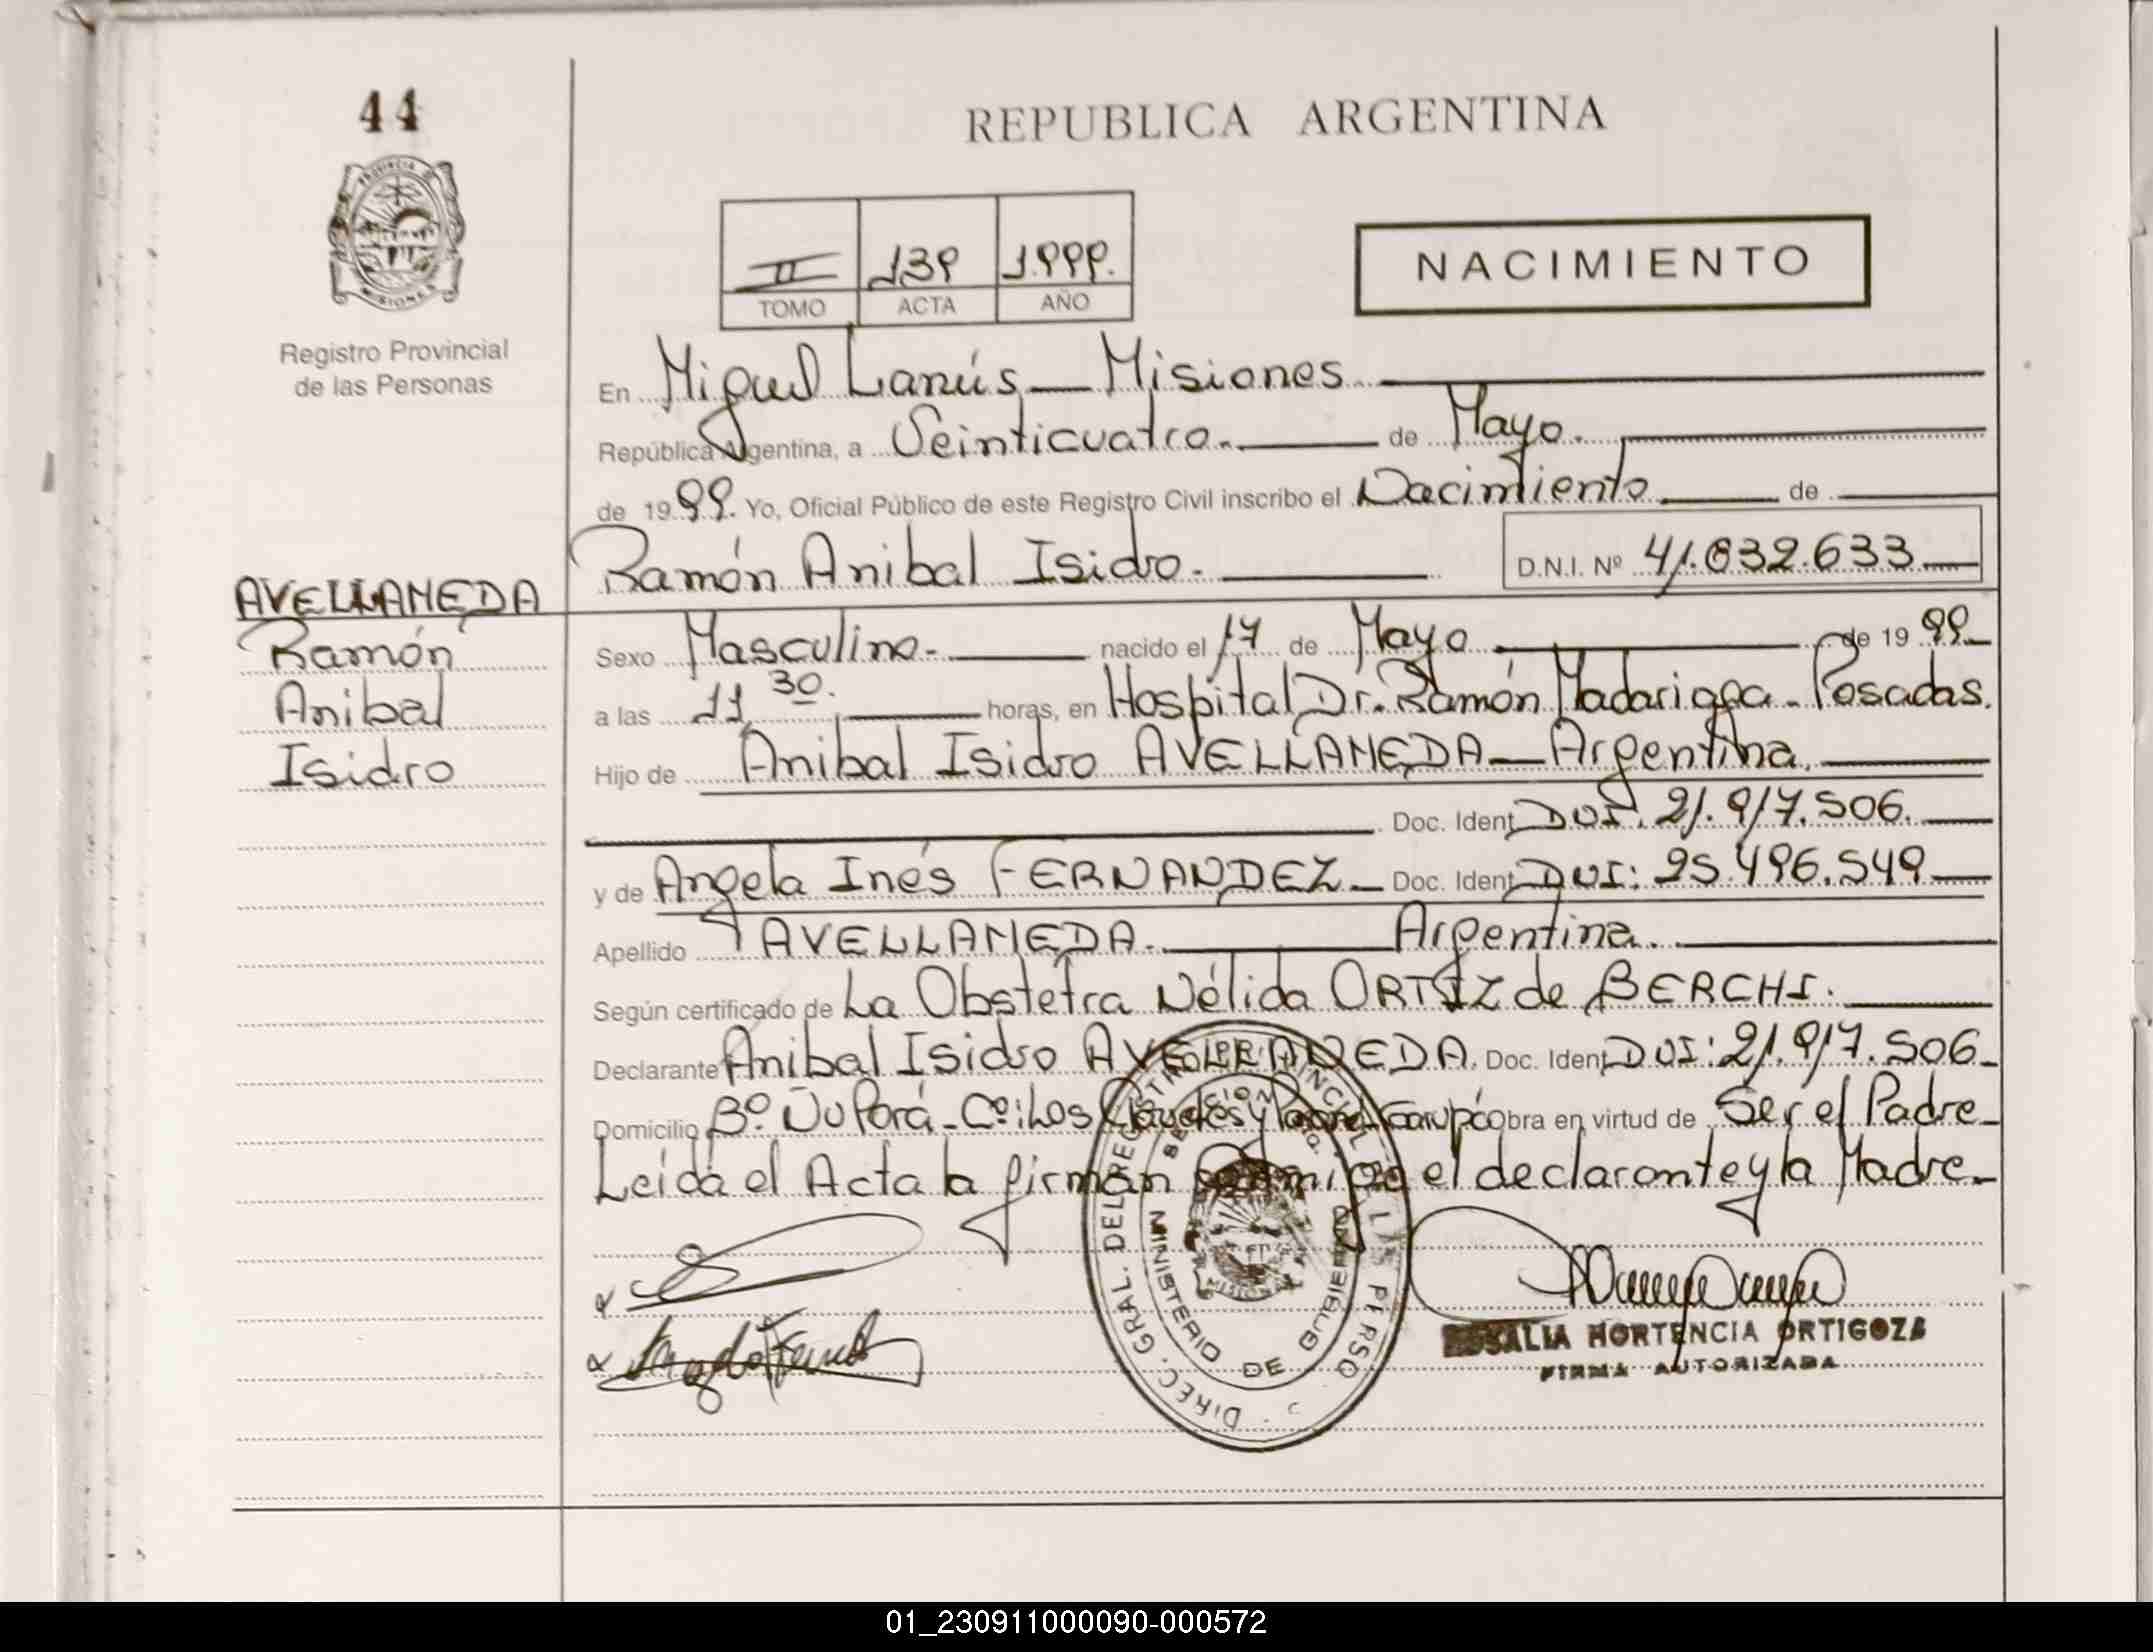 44
REPUBLICA ARGENTINA
II 139 1.999.
TOMO ACTA AÑO
NACIMIENTO
Registro Provincial
de las Personas
En Miguel Lanús — Misiones
República Argentina, a Veinticuatro. de Mayo.
de 19 99. Yo, Oficial Público de este Registro Civil inscribo el Nacimiento de
Ramón Anibal Isidro. D.N.I. Nº 41.032.633
AVELLANEDA
Ramón
Anibal
Isidro
Sexo Masculino. nacido el 17 de Mayo de 19 99
a las 11 30. horas, en Hospital Dr. Ramón Madariaga - Posadas.
Hijo de Anibal Isidro AVELLANEDA — Argentina.
Doc. Ident DUI. 21.917.506.
y de Angela Inés FERNANDEZ — Doc. Ident DUI: 25.496.549
Apellido AVELLANEDA. Argentina.
Según certificado de La Obstetra Nélida ORTIZ de BERCHI.
Declarante Anibal Isidro AVELLANEDA. Doc. Ident DUI: 21.917.506
Domicilio Bº. Ñu Porá - Cº: Los Claveles y Garupá obra en virtud de Ser el Padre
Leída el Acta la firman conmigo el declarante y la Madre
DIREC. GRAL. DEL REGISTRO PROVINCIAL DE L PERSO
MINISTERIO DE GOBIERNO
MISIONES
ROSALIA HORTENCIA ORTIGOZA
FIRMA AUTORIZADA
01_230911000090-000572